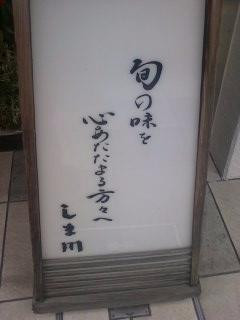 旬の味を
心あたたまる方々へ
しま川